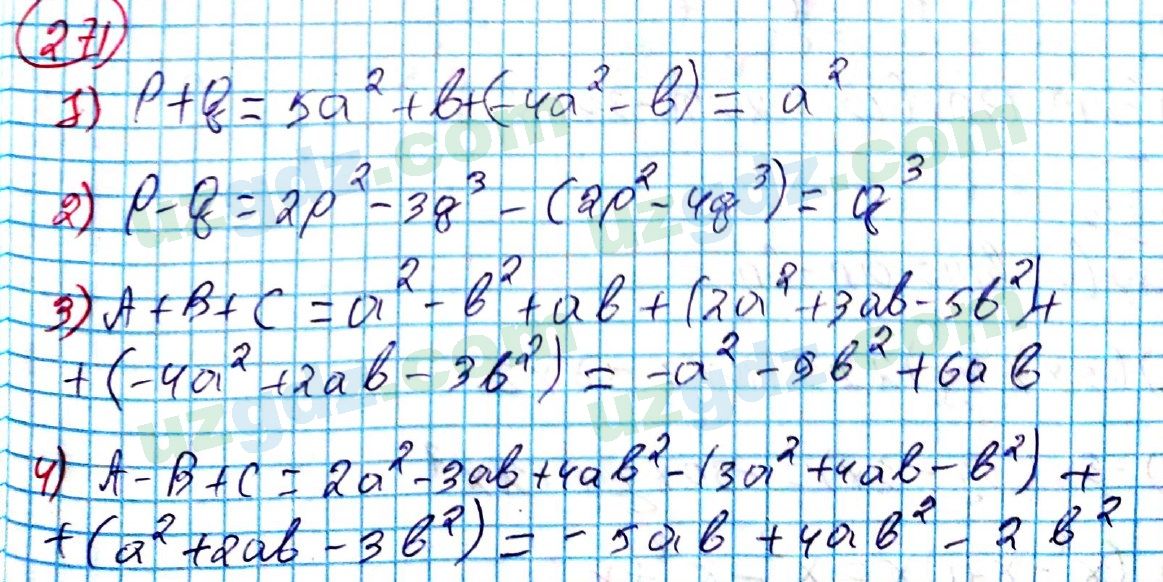 271
1) P+q = 5a²+b+(-4a²-b) = a²
2) P-q = 2p²-3q³-(2p²-4q³) = q³
3) A+B+C = a²-b²+ab+(2a²+3ab-5b²)+
+(-4a²+2ab-3b²) = -a²-9b²+6ab
4) A-B+C = 2a²-3ab+4ab²-(3a²+4ab-b²)+
+(a²+2ab-3b²) = -5ab+4ab²-2b²
uzgdz.com
uzgdz.com
uzgdz.com
uzgdz.com